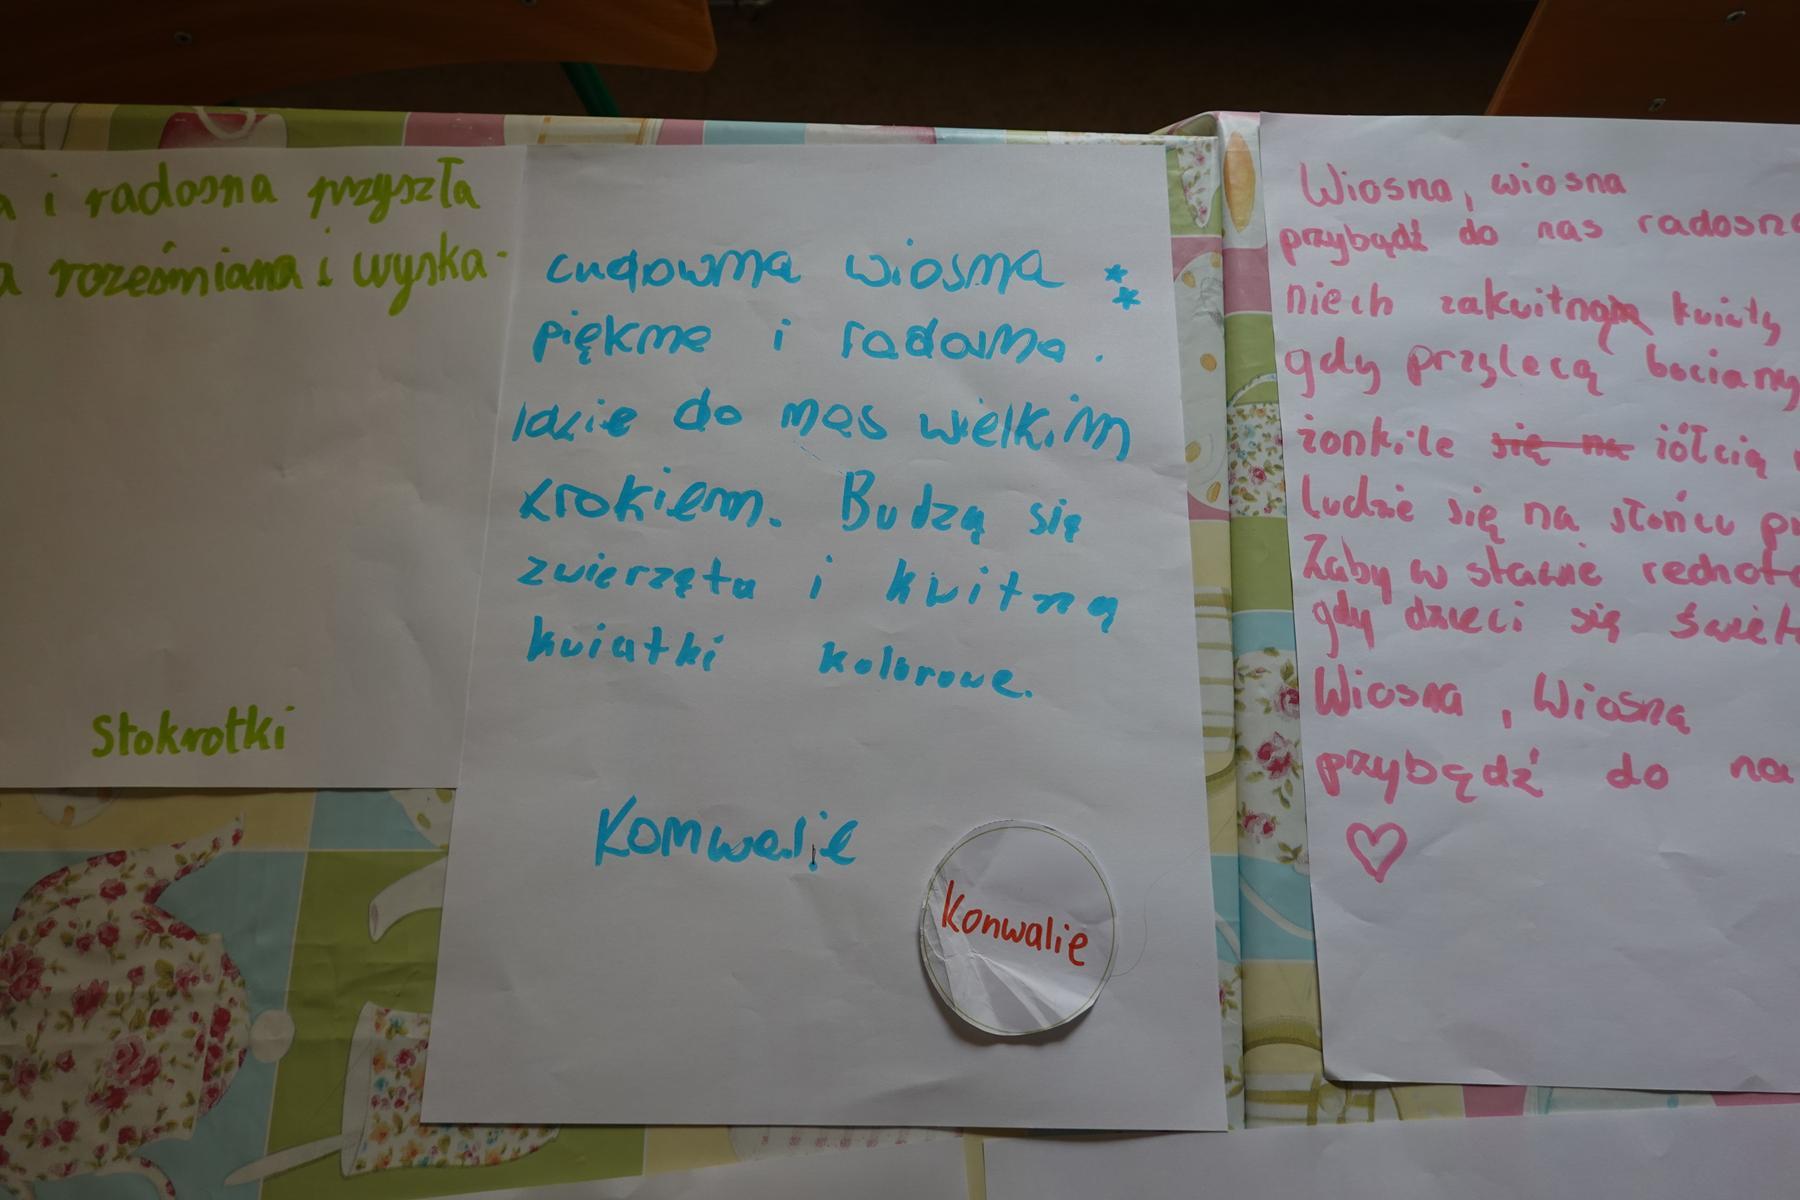 a i radosna przyszła
a roześmiana i wyska-
Stokrotki
cudowna wiosna
piękna i radosna.
Idzie do nas wielkim
krokiem. Budzą się
zwierzęta i kwitną
kwiatki kolorowe.
Konwalie
Konwalie
Wiosna, wiosna
przybądź do nas radosna
niech zakwitną kwiaty
gdy przylecą bociany
żonkile się na żółcią
Ludzie się na słońcu
Żaby w stawie
gdy dzieci się
Wiosna, Wiosna
przybądź do na